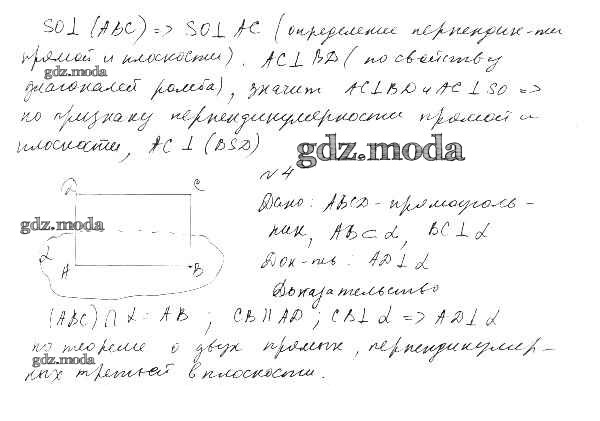 SO⊥(ABC) => SO⊥AC (определение перпендик-ти
прямой и плоскости). AC⊥BD (по свойству
gdz.moda
диагоналей ромба), значит AC⊥BD и AC⊥SO =>
по признаку перпендикулярности прямой и
плоскости, AC⊥(BSD)
gdz.moda
№4
D C
Дано: ABCD - прямоуголь-
gdz.moda
ник, AB⊂α, BC⊥α
α
A B
Док-ть: AD⊥α
Доказательство
(ABC)∩α = AB ; CB||AD ; CB⊥α => AD⊥α
по теореме о двух прямых, перпендикуляр-
gdz.moda
ных третьей в плоскости.